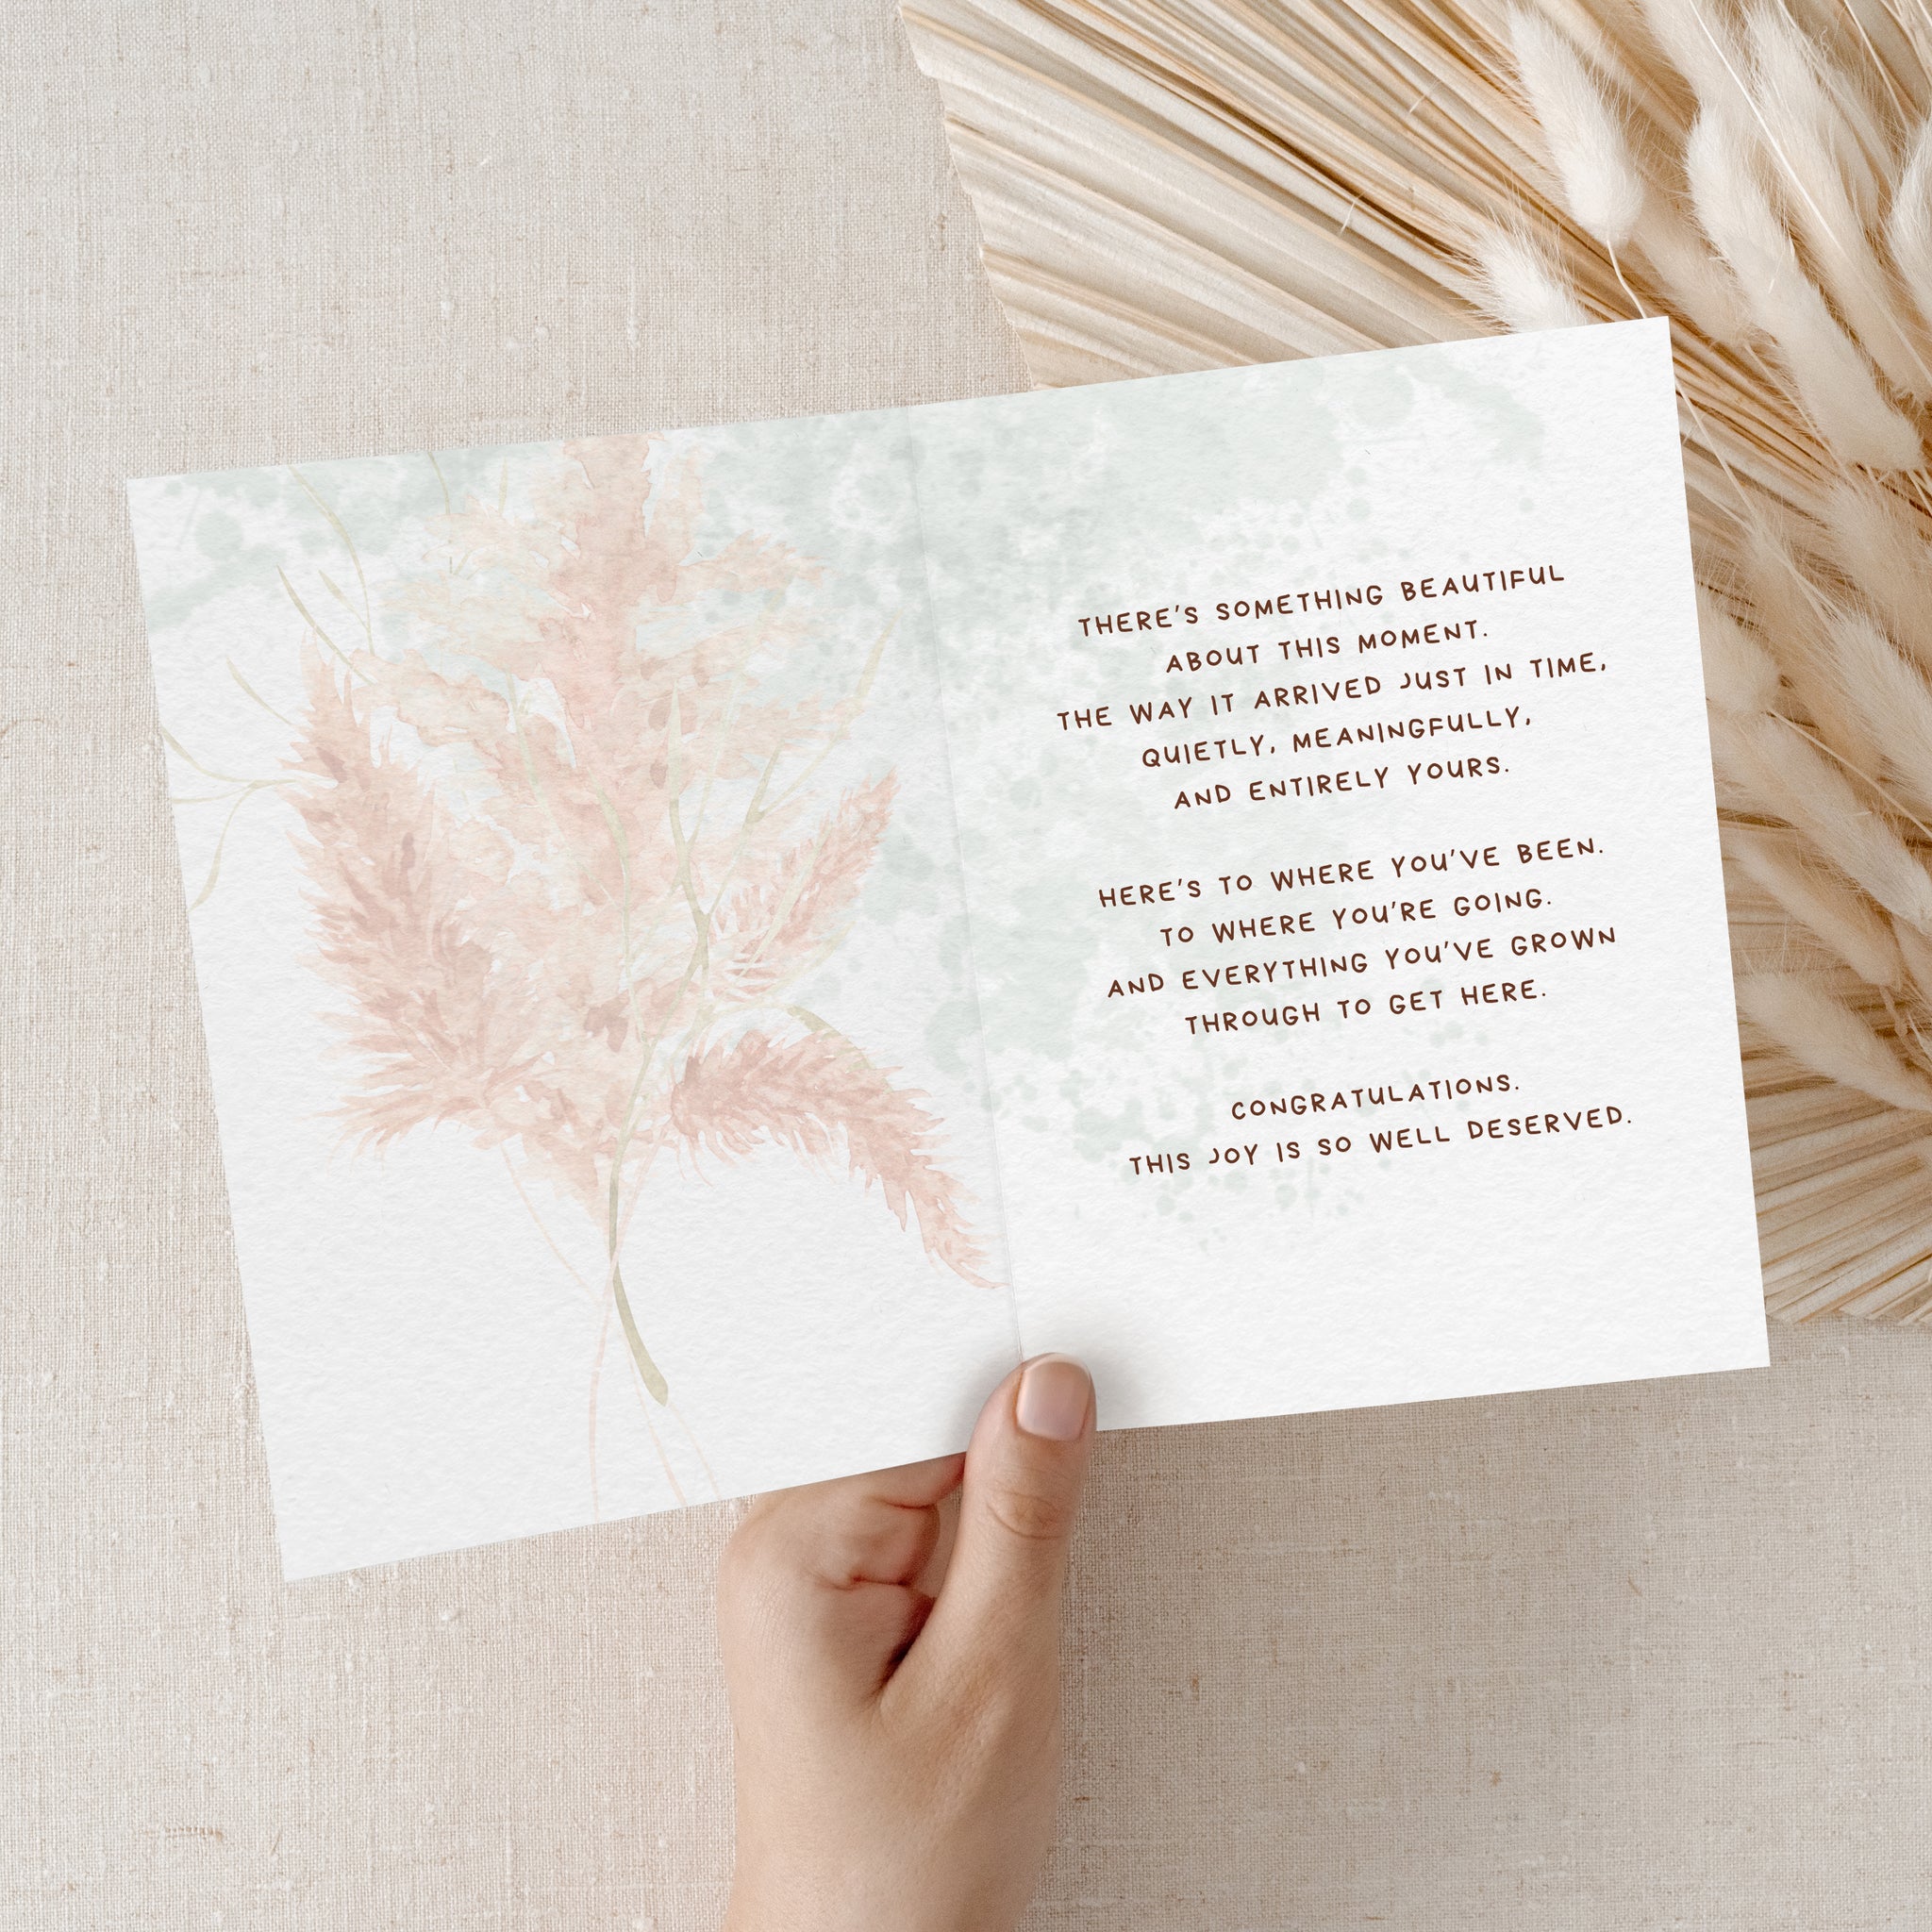 THERE'S SOMETHING BEAUTIFUL
ABOUT THIS MOMENT.
THE WAY IT ARRIVED JUST IN TIME,
QUIETLY, MEANINGFULLY,
AND ENTIRELY YOURS.
HERE'S TO WHERE YOU'VE BEEN.
TO WHERE YOU'RE GOING.
AND EVERYTHING YOU'VE GROWN
THROUGH TO GET HERE.
CONGRATULATIONS.
THIS JOY IS SO WELL DESERVED.